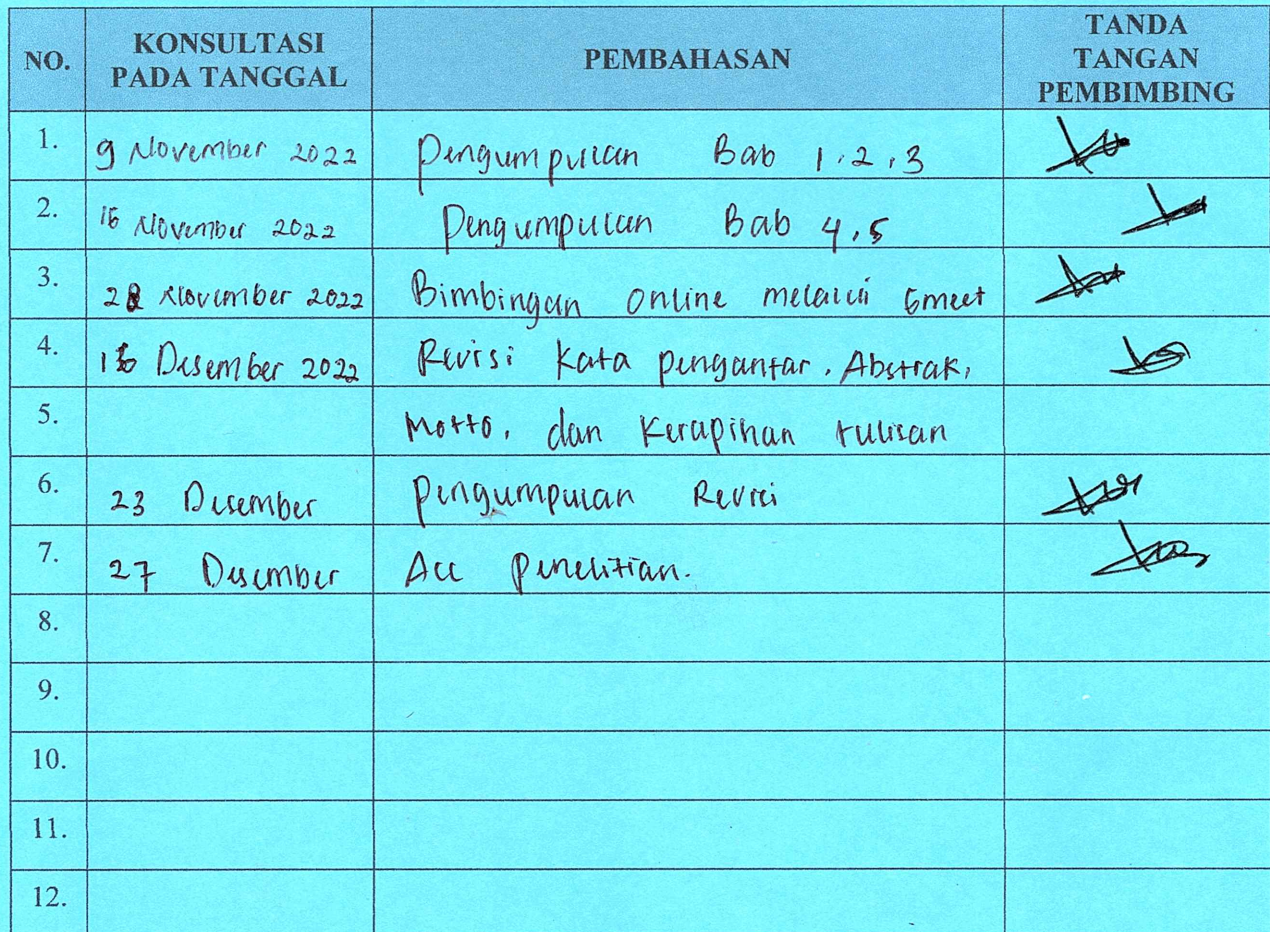 NO. KONSULTASI PADA TANGGAL PEMBAHASAN TANDA TANGAN PEMBIMBING
1. 9 November 2022 Pengumpulan Bab 1,2,3
2. November 2022 Pengumpulan Bab 4,5
3. November 2022 Bimbingan Online melalui Gmeet
4. Desember 2022 Revisi Kata pengantar, Abstrak,
5. Motto, dan Kerapihan tulisan
6. 23 Desember Pengumpulan Revisi
7. 27 Desember Acc Penelitian.
8.
9.
10.
11.
12.